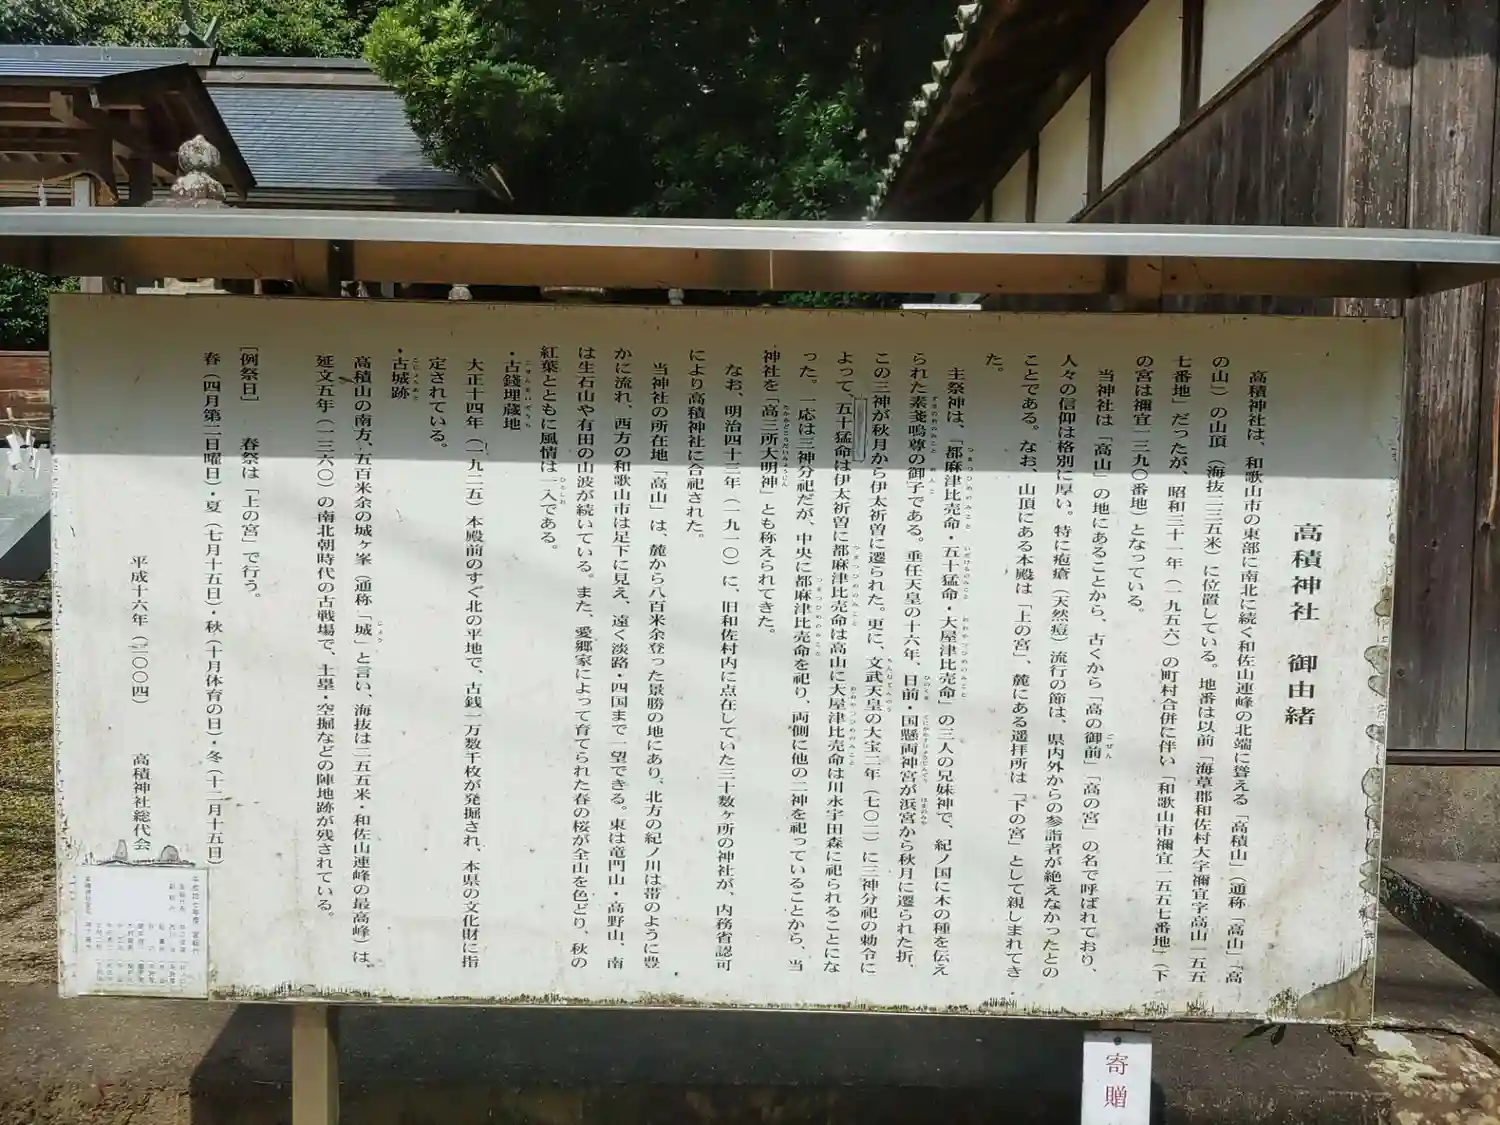 高積神社 御由緒
高積神社は、和歌山市の東部に南北に続く和佐山連峰の北端に聳える「高積山」（通称「高山」「高
の山」）の山頂（海抜二三五米）に位置している。地番は以前「海草郡和佐村大字禰宜字高山一五五
七番地」だったが、昭和三十一年（一九五六）の町村合併に伴い「和歌山市禰宜一五五七番地」（下
の宮は禰宜一三九〇番地）となっている。
当神社は「高山」の地にあることから、古くから「高の御前」「高の宮」の名で呼ばれており、
人々の信仰は格別に厚い。特に疱瘡（天然痘）流行の節は、県内外からの参詣者が絶えなかったとの
ことである。なお、山頂にある本殿は「上の宮」、麓にある遥拝所は「下の宮」として親しまれてき
た。
主祭神は、「都麻津比売命・五十猛命・大屋津比売命」の三人の兄妹神で、紀ノ国に木の種を伝え
られた素戔嗚尊の御子である。垂任天皇の十六年、日前・国懸両神宮が浜宮から秋月に遷られた折、
この三神が秋月から伊太祈曽に遷られた。更に、文武天皇の大宝二年（七〇二）に三神分祀の勅令に
よって、五十猛命は伊太祈曽に都麻津比売命は高山に大屋津比売命は川永宇田森に祀られることにな
った。一応は三神分祀だが、中央に都麻津比売命を祀り、両側に他の二神を祀っていることから、当
神社を「高三所大明神」とも称えられてきた。
なお、明治四十三年（一九一〇）に、旧和佐村内に点在していた三十数ヶ所の神社が、内務省認可
により高積神社に合祀された。
当神社の所在地「高山」は、麓から八百米余登った景勝の地にあり、北方の紀ノ川は帯のように豊
かに流れ、西方の和歌山市は足下に見え、遠く淡路・四国まで一望できる。東は竜門山・高野山、南
は生石山や有田の山波が続いている。また、愛郷家によって育てられた春の桜が全山を色どり、秋の
紅葉とともに風情は一入である。
・古錢埋蔵地
大正十四年（一九二五）本殿前のすぐ北の平地で、古銭一万数千枚が発掘され、本県の文化財に指
定されている。
・古城跡
高積山の南方、五百米余の城ヶ峯（通称「城」と言い、海抜は二五五米・和佐山連峰の最高峰）は、
延文五年（一三六〇）の南北朝時代の古戦場で、土塁・空掘などの陣地跡が残されている。
［例祭日］ 春祭は「上の宮」で行う。
春（四月第二日曜日）・夏（七月十五日）・秋（十月体育の日）・冬（十二月十五日）
平成十六年（二〇〇四） 高積神社総代会
寄贈